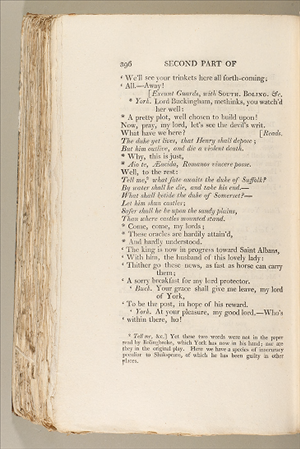 396 SECOND PART OF
‘ We'll see your trinkets here all forth-coming;
‘ All.—Away!
[Exeunt Guards, with SOUTH. BOLING. &c.
* York. Lord Buckingham, methinks, you watch'd
her well:
* A pretty plot, well chosen to build upon!
Now, pray, my lord, let's see the devil's writ.
What have we here? [Reads.
The duke yet lives, that Henry shall depose;
But him outlive, and die a violent death.
* Why, this is just,
* Aio te, Æacida, Romanos vincere posse.
Well, to the rest:
Tell me,⁹ what fate awaits the duke of Suffolk?
By water shall he die, and take his end.—
What shall betide the duke of Somerset?—
Let him shun castles;
Safer shall he be upon the sandy plains,
Than where castles mounted stand.
* Come, come, my lords;
* These oracles are hardily attain'd,
* And hardly understood.
‘ The king is now in progress toward Saint Albans,
‘ With him, the husband of this lovely lady:
‘ Thither go these news, as fast as horse can carry
them;
‘ A sorry breakfast for my lord protector.
‘ Buck. Your grace shall give me leave, my lord
of York,
‘ To be the post, in hope of his reward.
‘ York. At your pleasure, my good lord.—Who's
‘ within there, ho!
⁹ Tell me, &c.] Yet these two words were not in the paper
read by Bolingbroke, which York has now in his hand; nor are
they in the original play. Here we have a species of inaccuracy
peculiar to Shakspeare, of which he has been guilty in other
places.